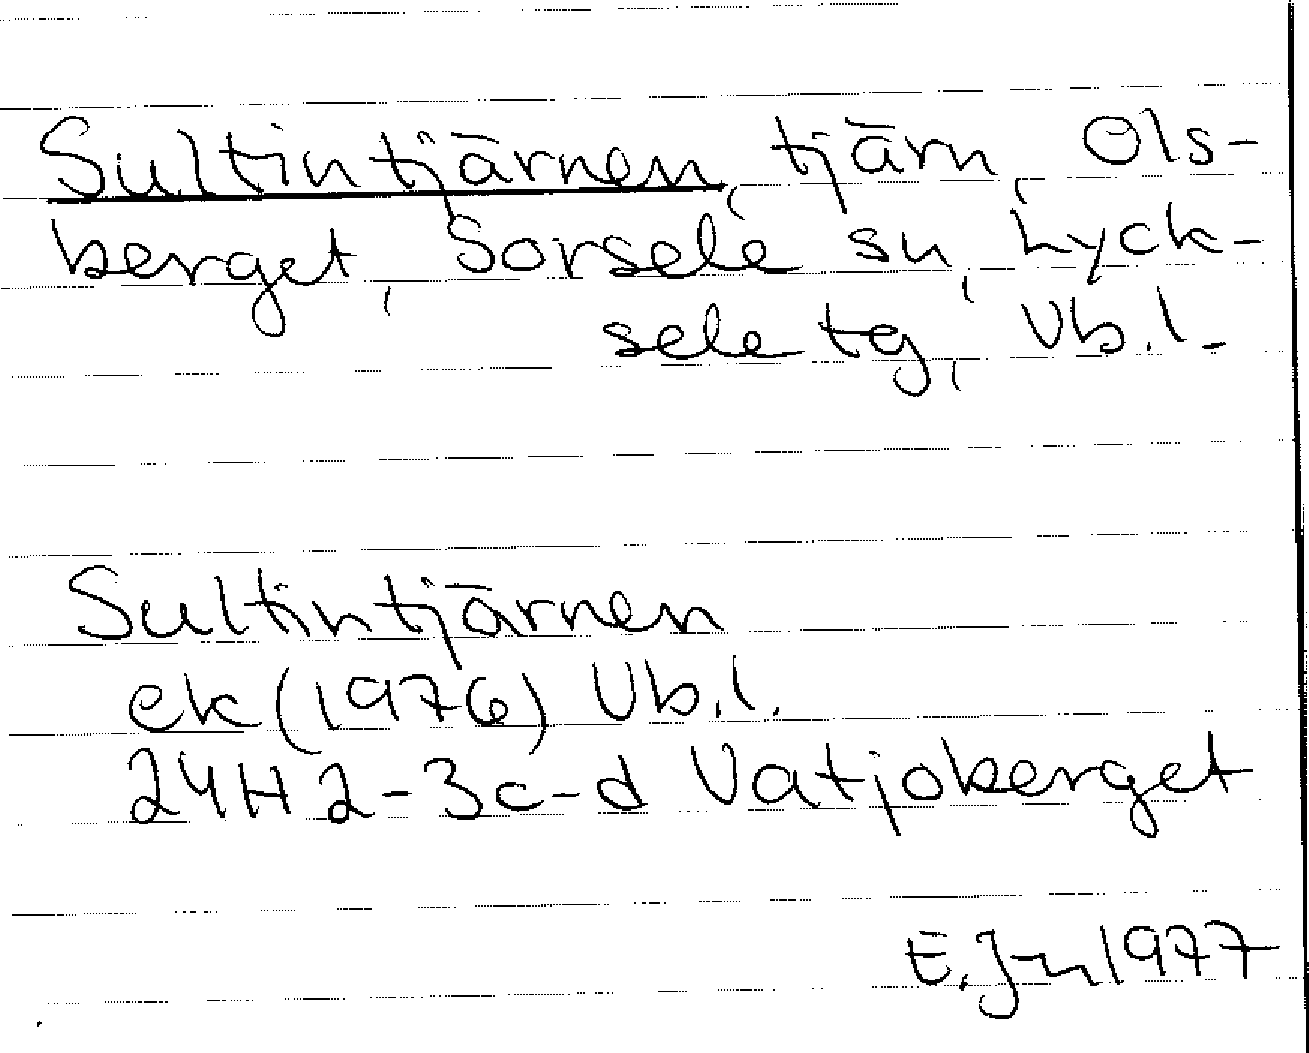 Sultintjärnen, tjärn, Ols-
berget, Sorsele sn, Lyck-
sele tg, Vb.l.
Sultintjärnen
ek (1976) Vb.l.
24H 2-3c-d Vatjoberget
E. Jn 1977